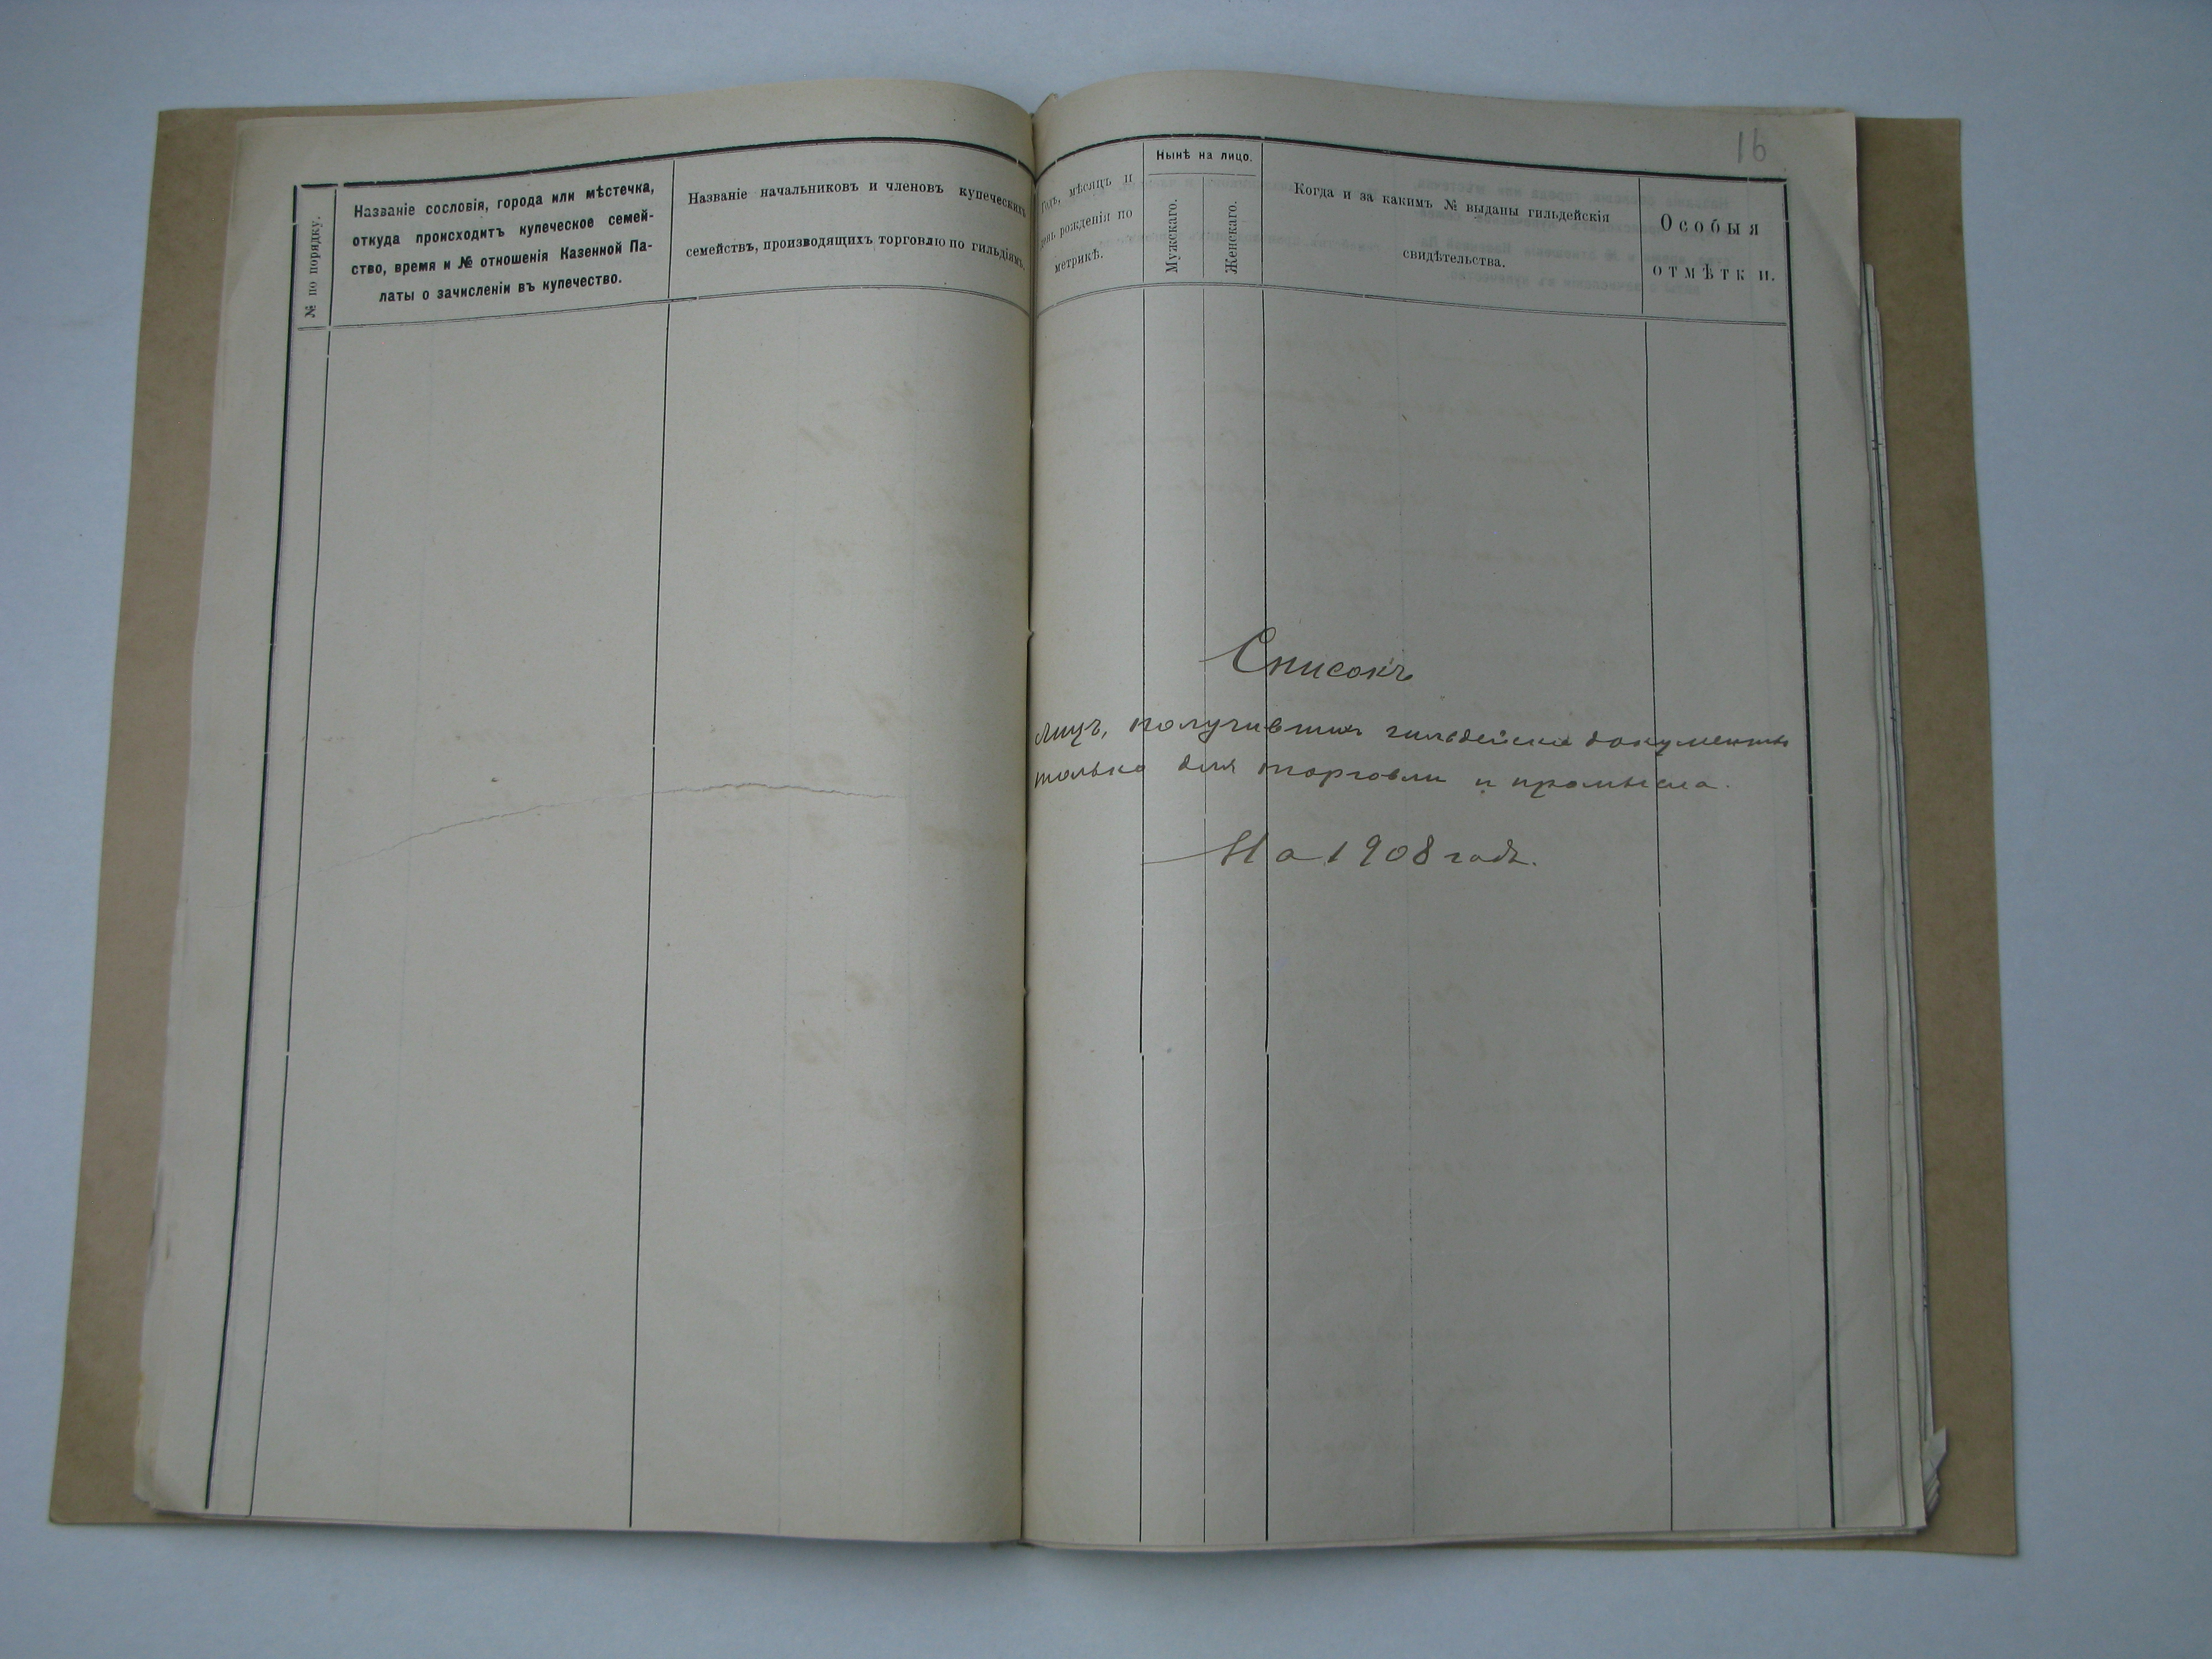 16
№ по порядку.
Названіе сословія, города или мѣстечка,
откуда происходитъ купеческое семей-
ство, время и № отношенія Казенной Па-
латы о зачисленіи въ купечество.
Названіе начальниковъ и членовъ купеческихъ
семействъ, производящихъ торговлю по гильдіямъ.
Годъ, мѣсяцъ и
день рожденія по
метрикѣ.
Нынѣ на лицо.
Мужскаго.
Женскаго.
Когда и за какимъ № выданы гильдейскія
свидѣтельства.
Особыя
отмѣтки.
Списокъ
лицъ, получившихъ гильдейскіе документы
только для торговли и промысла.
На 1908 годъ.